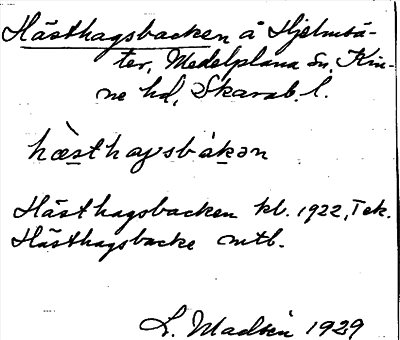 Hästhagsbacken å Hjelmsä-
ter, Medelplana sn, Kin-
ne hd, Skarab. l.
hæ̀sthagsbákən
Hästhagsbacken kb. 1922, I ek.
Hästhagsbacke mtb.
L. Madsén 1929